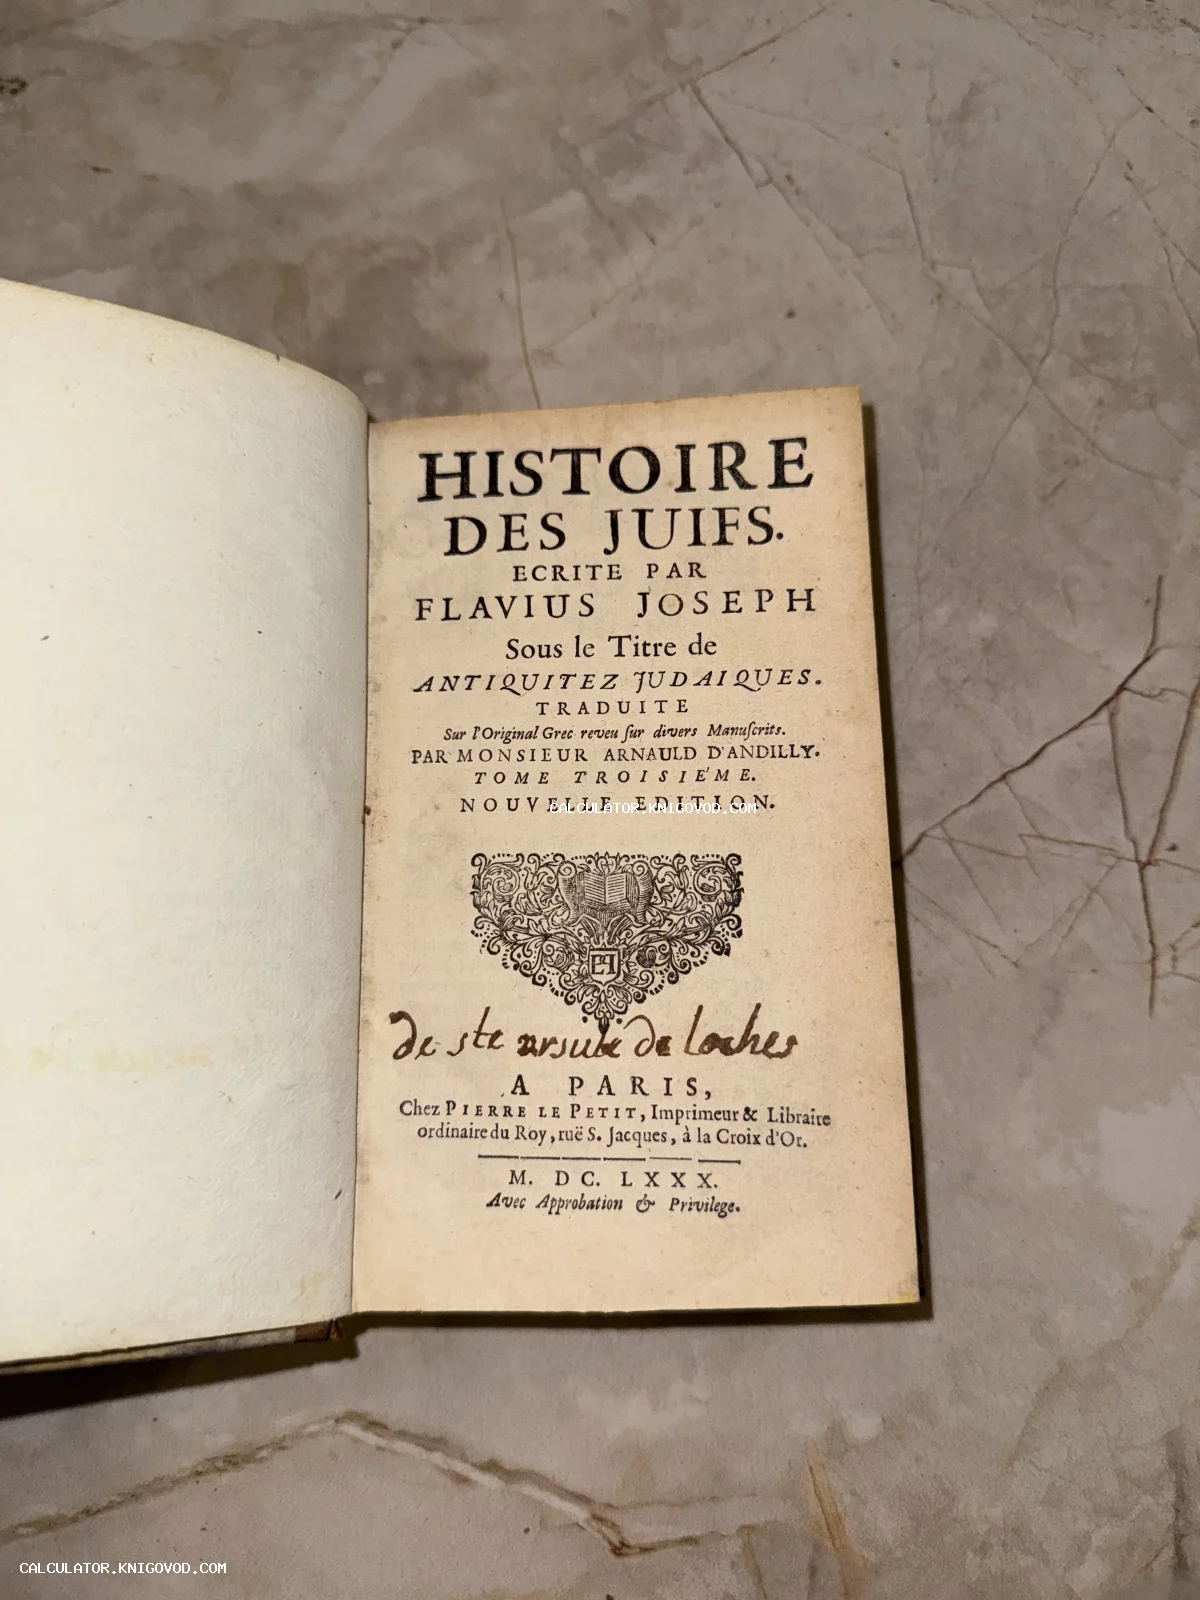 HISTOIRE
DES JUIFS.
ECRITE PAR
FLAVIUS JOSEPH
Sous le Titre de
ANTIQUITEZ JUDAIQUES.
TRADUITE
Sur l'Original Grec reveu ſur divers Manuſcrits.
PAR MONSIEUR ARNAULD D'ANDILLY.
TOME TROISIÉME.
NOUVELLE EDITION.
CALCULATOR.KNIGOVOD.COM
de ste ursule de loches
A PARIS,
Chez PIERRE LE PETIT, Imprimeur & Libraire
ordinaire du Roy, ruë S. Jacques, à la Croix d'Or.
M. DC. LXXX.
Avec Approbation & Privilege.
CALCULATOR.KNIGOVOD.COM